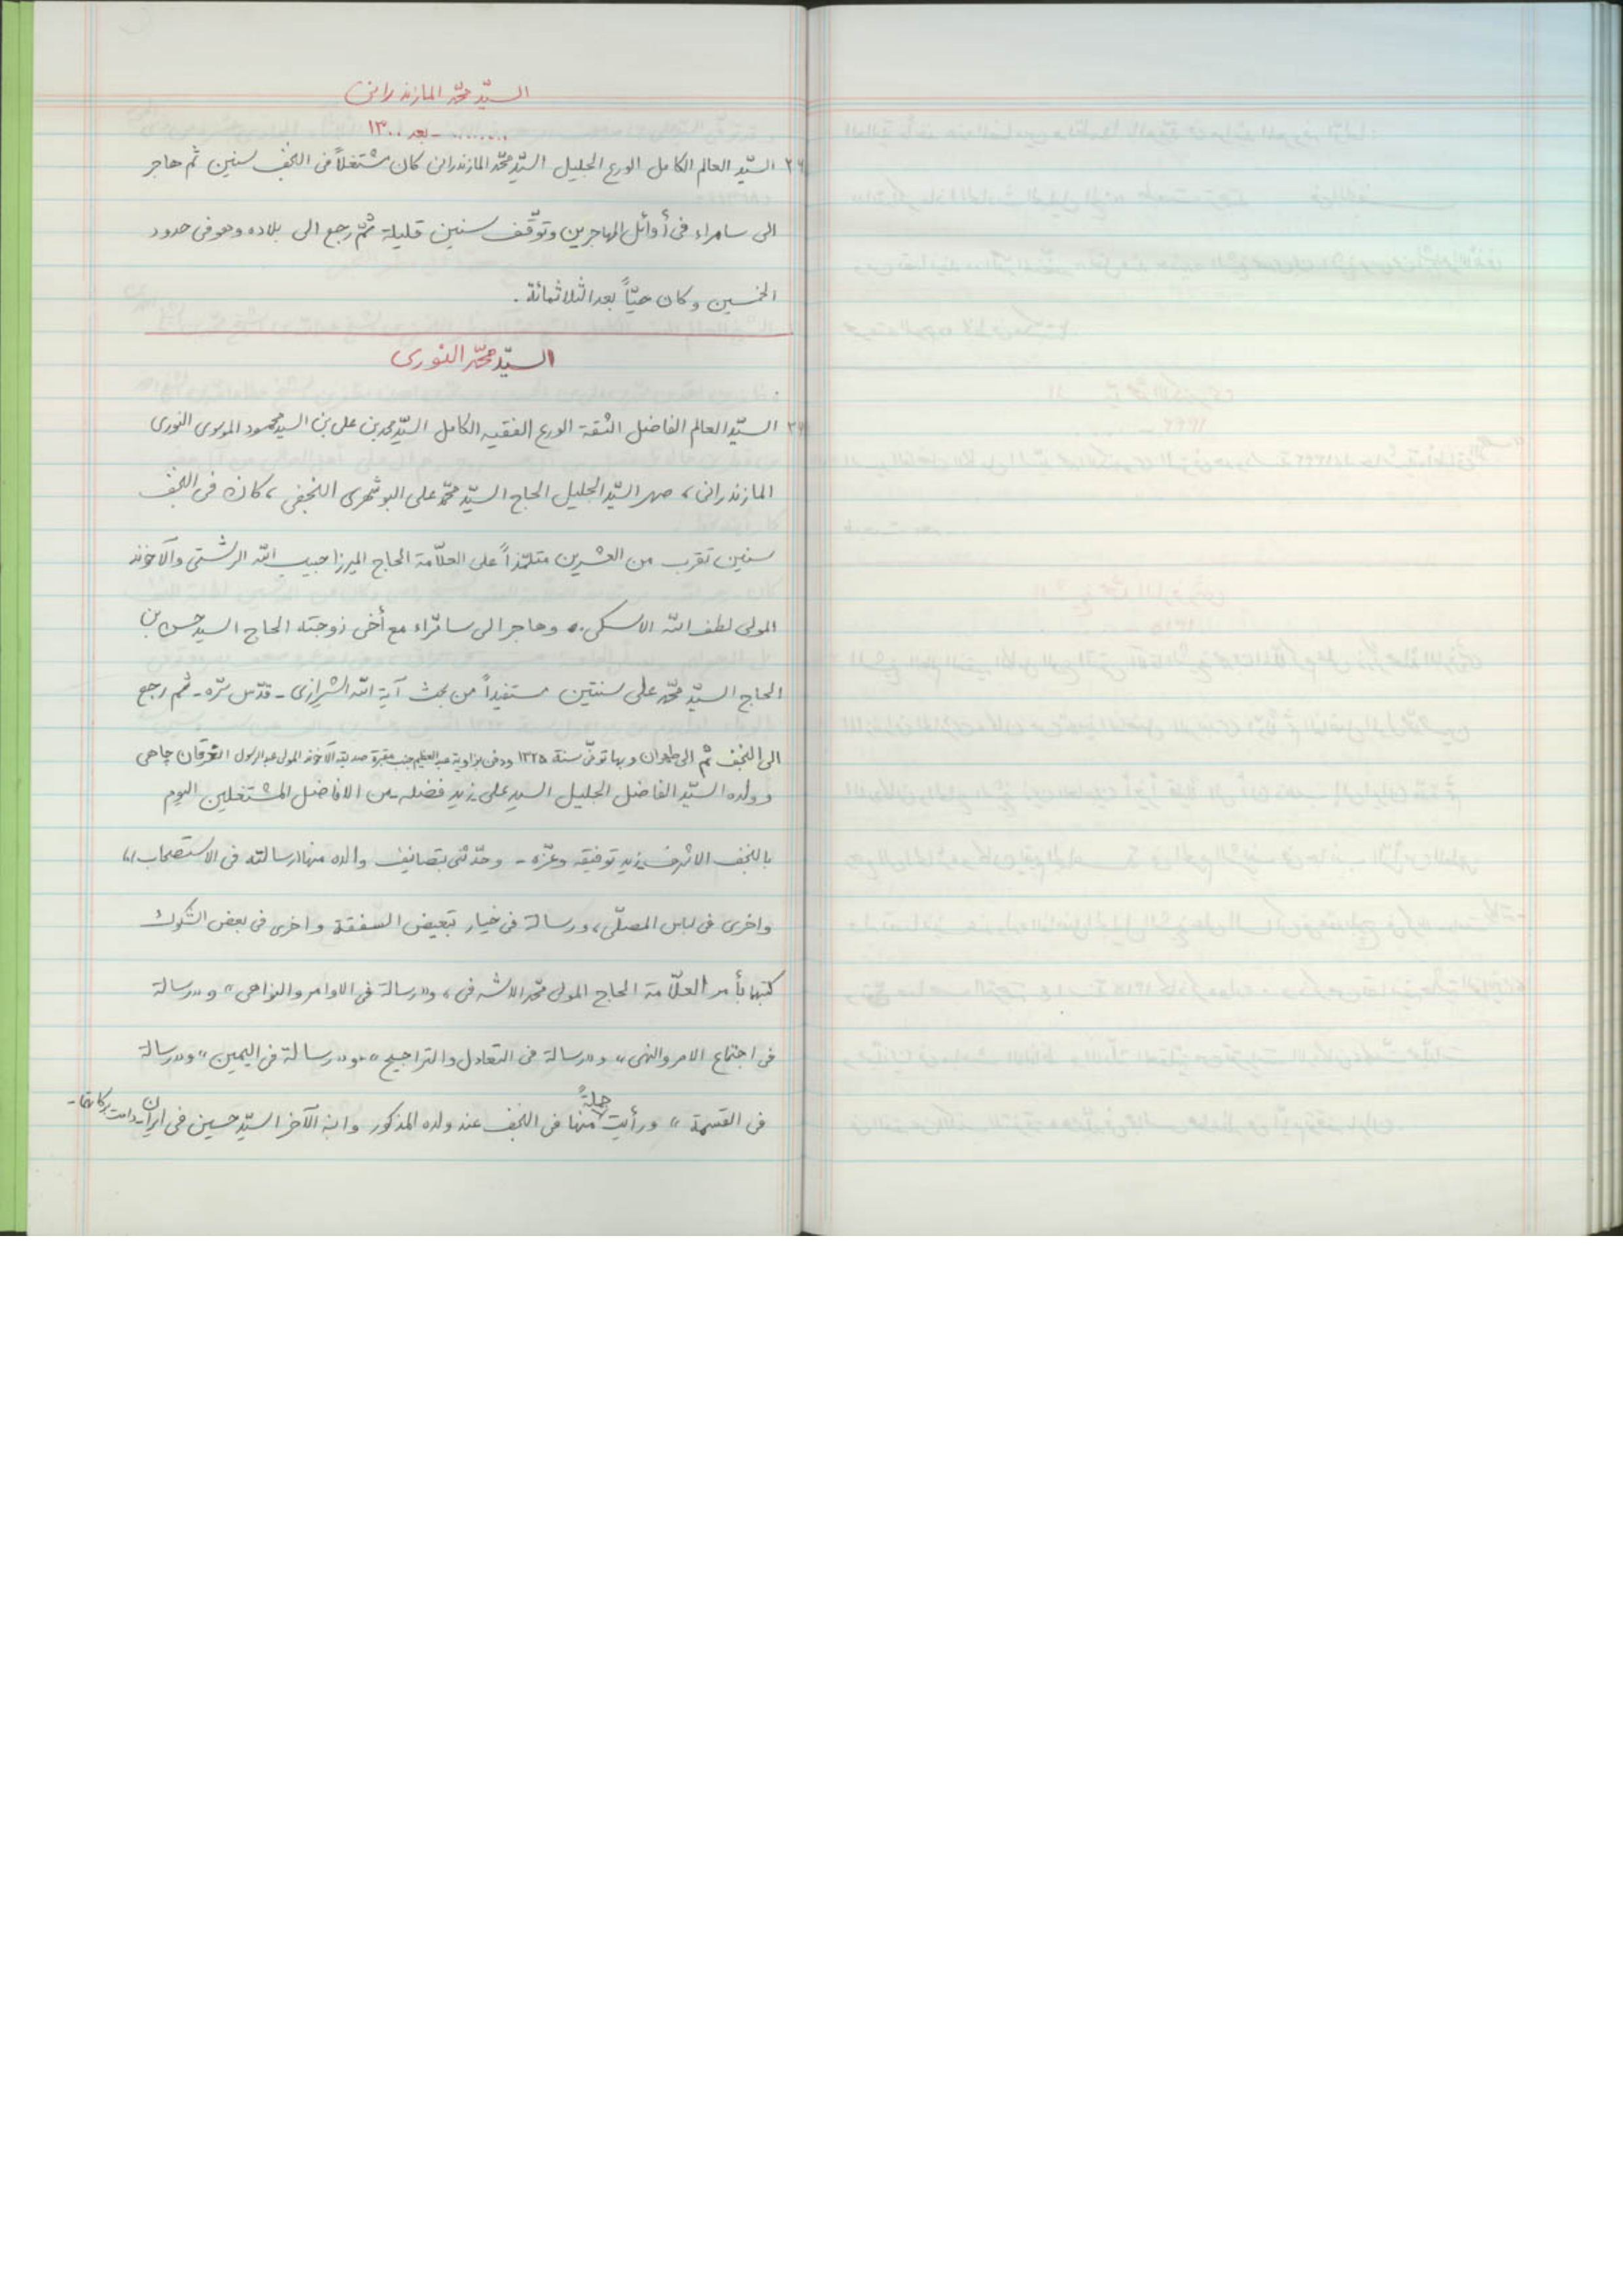 السيّد محمّد المازندرانى
......... - بعد ١٣٠٠
السيّد العالم الكامل الورع الجليل السيّد محمّد المازندرانى كان مشتغلاً فى النجف سنين ثم هاجر
الى سامراء فى أوائل المهاجرين وتوقّف سنين قليلة ثمّ رجع الى بلاده وهو فى حدود
الخمسين وكان حيّاً بعد الثلاثمائة .
السيّد محمّد النورى
السيّد العالم الفاضل الثقة الورع الفقيه الكامل السيّد محمد بن على بن السيد محمود الموسوى النورى
المازندرانى، صهر السيّد الجليل الحاج السيّد محمّد على البوشهرى النجفى، كان فى النجف
سنين تقرب من العشرين متلمّذاً على العلّامة الحاج الميرزا حبيب الله الرشتى والآخوند
المولى لطف الله الاسكى. وهاجر الى سامّراء مع أخى زوجته الحاج السيد حسن بن
الحاج السيّد محمّد على سنتين مستفيداً من بحث آية الله الشيرازى - قدّس سّره - ثم رجع
الى النجف ثم الى طهران وبها توفّى سنة ١٣٢٥ ودفن بزاوية عبد العظيم جنب مقبرة صديقه الآخوند المولى عبد الرسول چاهى
وولده السيّد الفاضل الجليل السيد على زيد فضله - من الافاضل المشتغلين اليوم
بالنجف الاشرف زيد توفيقه وعزّه - وحدّثنى بتصانيف والده منها «رسالته فى الاستصحاب»
واخرى فى لباس المصلّى، ورسالة فى خيار تبعيض الصفقة واخرى فى بعض الشكوك
كتبها بأمر العلّامة الحاج المولى محمّد الاشرفى، و«رسالة فى الاوامر والنواهى» و«رسالة
فى اجتماع الامر والنهى» و«رسالة فى التعادل والتراجيح» و«رسالة فى اليمين» و«رسالة
فى القسمة» ورأيت جملةً منها فى النجف عند ولده المذكور وابنه الآخر السيّد حسين فى ايران - دامت بركاتهما -